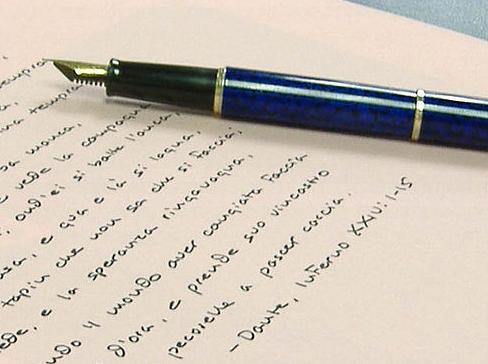 tempra
tempra,
sa manca,
e vede la campagna
ond'ei si batte l'anca,
e qua e là si lagna,
tapin che non sa che si faccia;
e la speranza ringavagna,
mondo aver cangiata faccia
d'ora, e prende suo vincastro
pecorelle a pascer caccia.
- Dante, Inferno XXIV: 1-15